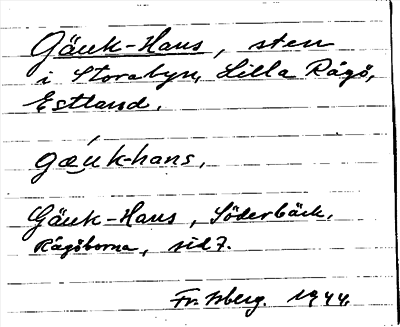 Gäuk-Hans, sten
i Storabyn, Lilla Rågö,
Estland.
gǽ̯uk-hans.
Gäuk-Hans, Söderbäck,
Rågöborna, sid 7.
Fr. Isberg. 1944.